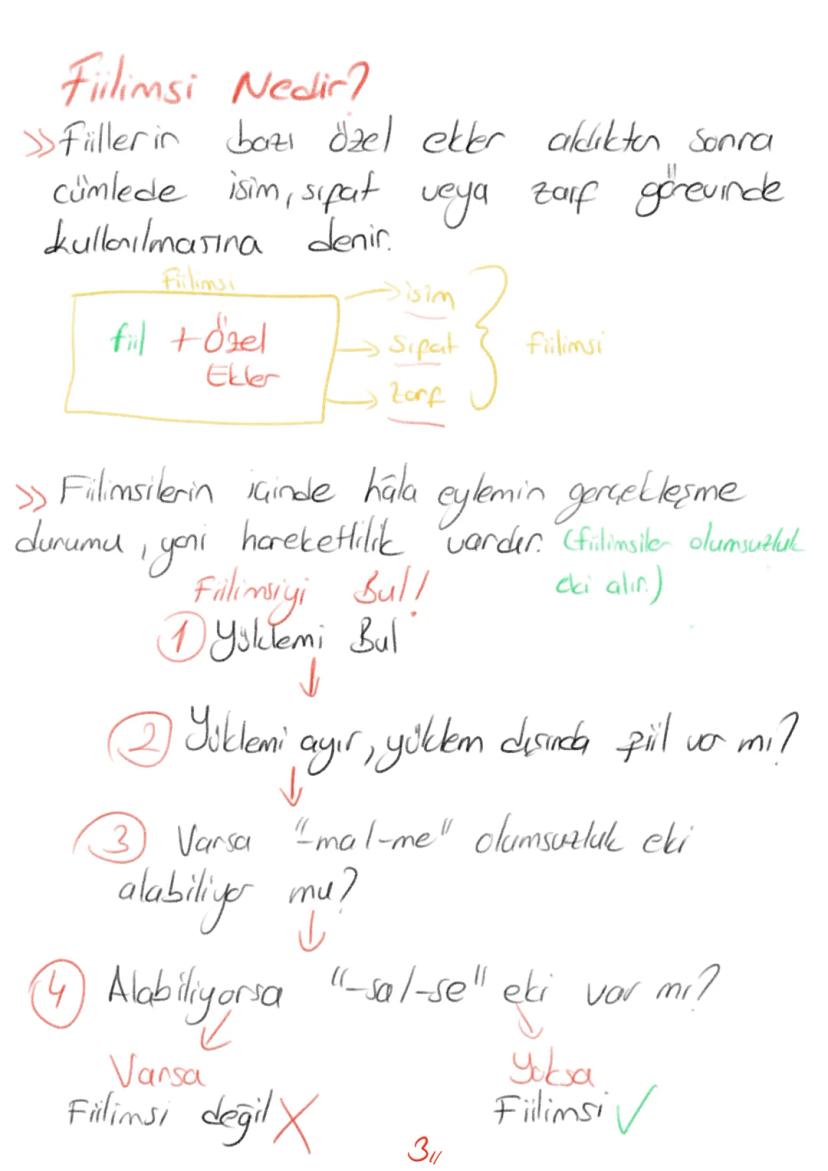 Fiilimsi Nedir?
>> Fiillerin bazı özel ekler aldıktan sonra
cümlede isim, sıfat veya zarf görevinde
kullanılmasına denir.
Fiilimsi
fiil + Özel
Ekler
→ isim
→ sıfat
→ zarf
fiilimsi
>> Fiilimsilerin içinde hâla eylemin gerçekleşme
durumu, yani hareketlilik vardır. (fiilimsiler olumsuzluk
eki alır.)
Fiilimsiyi Bul!
1 Yüklemi Bul
2 Yüklemi ayır, yüklem dışında fiil var mı?
3 Varsa "-ma/-me" olumsuzluk eki
alabiliyor mu?
4 Alabiliyorsa "-sa/-se" eki var mı?
Varsa Yoksa
Fiilimsi değil X Fiilimsi ✓
3